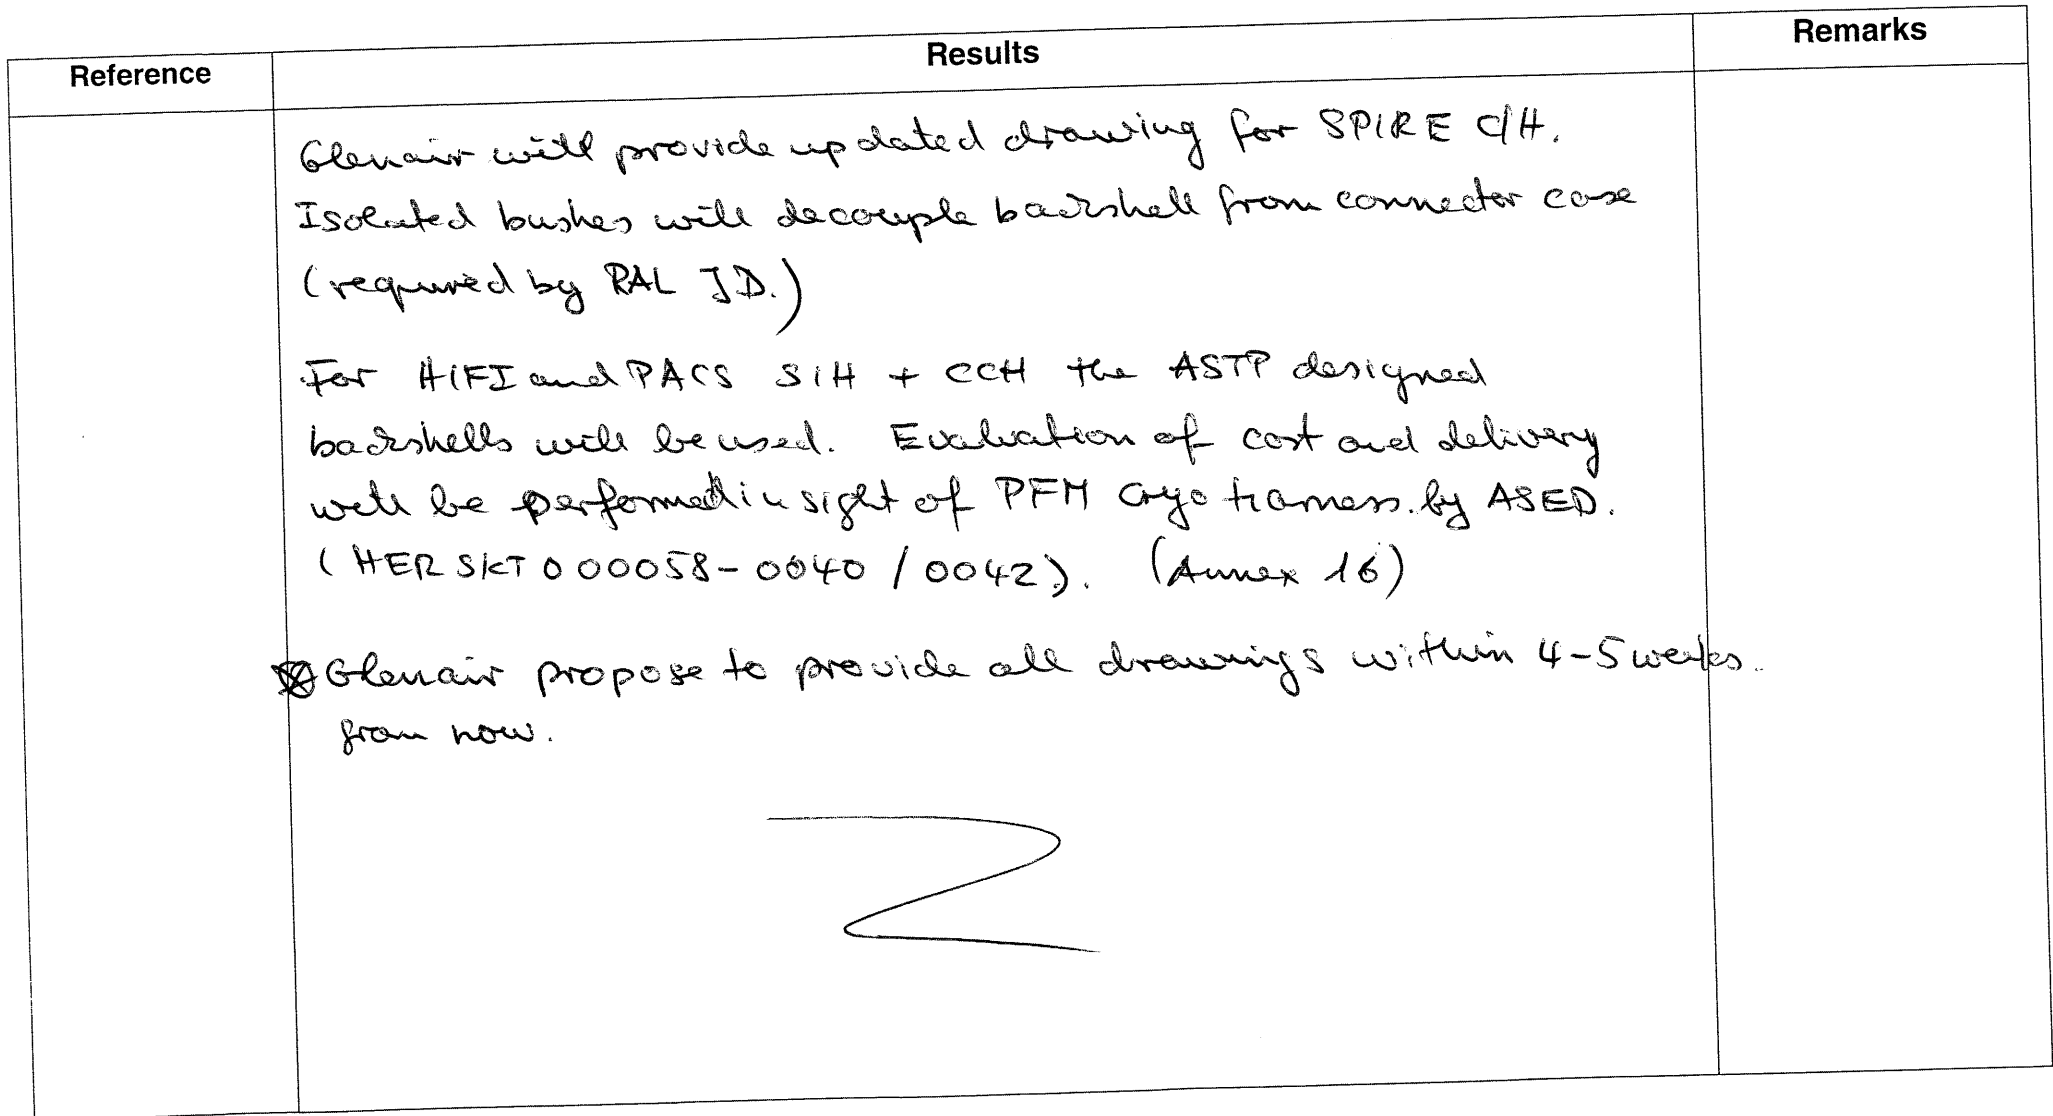 Reference Results Remarks
Glenair will provide updated drawing for SPIRE C/H.
Isolated bushes will decouple backshell from connector case
(required by RAL JD.)
For HIFI and PACS SIH + CCH the ASTP designed
backshells will be used. Evaluation of cost and delivery
will be performed in sight of PFM Cryo harness. by ASED.
(HER SKT 000058-0040 / 0042). (Annex 16)
Glenair propose to provide all drawings within 4-5 weeks.
from now.